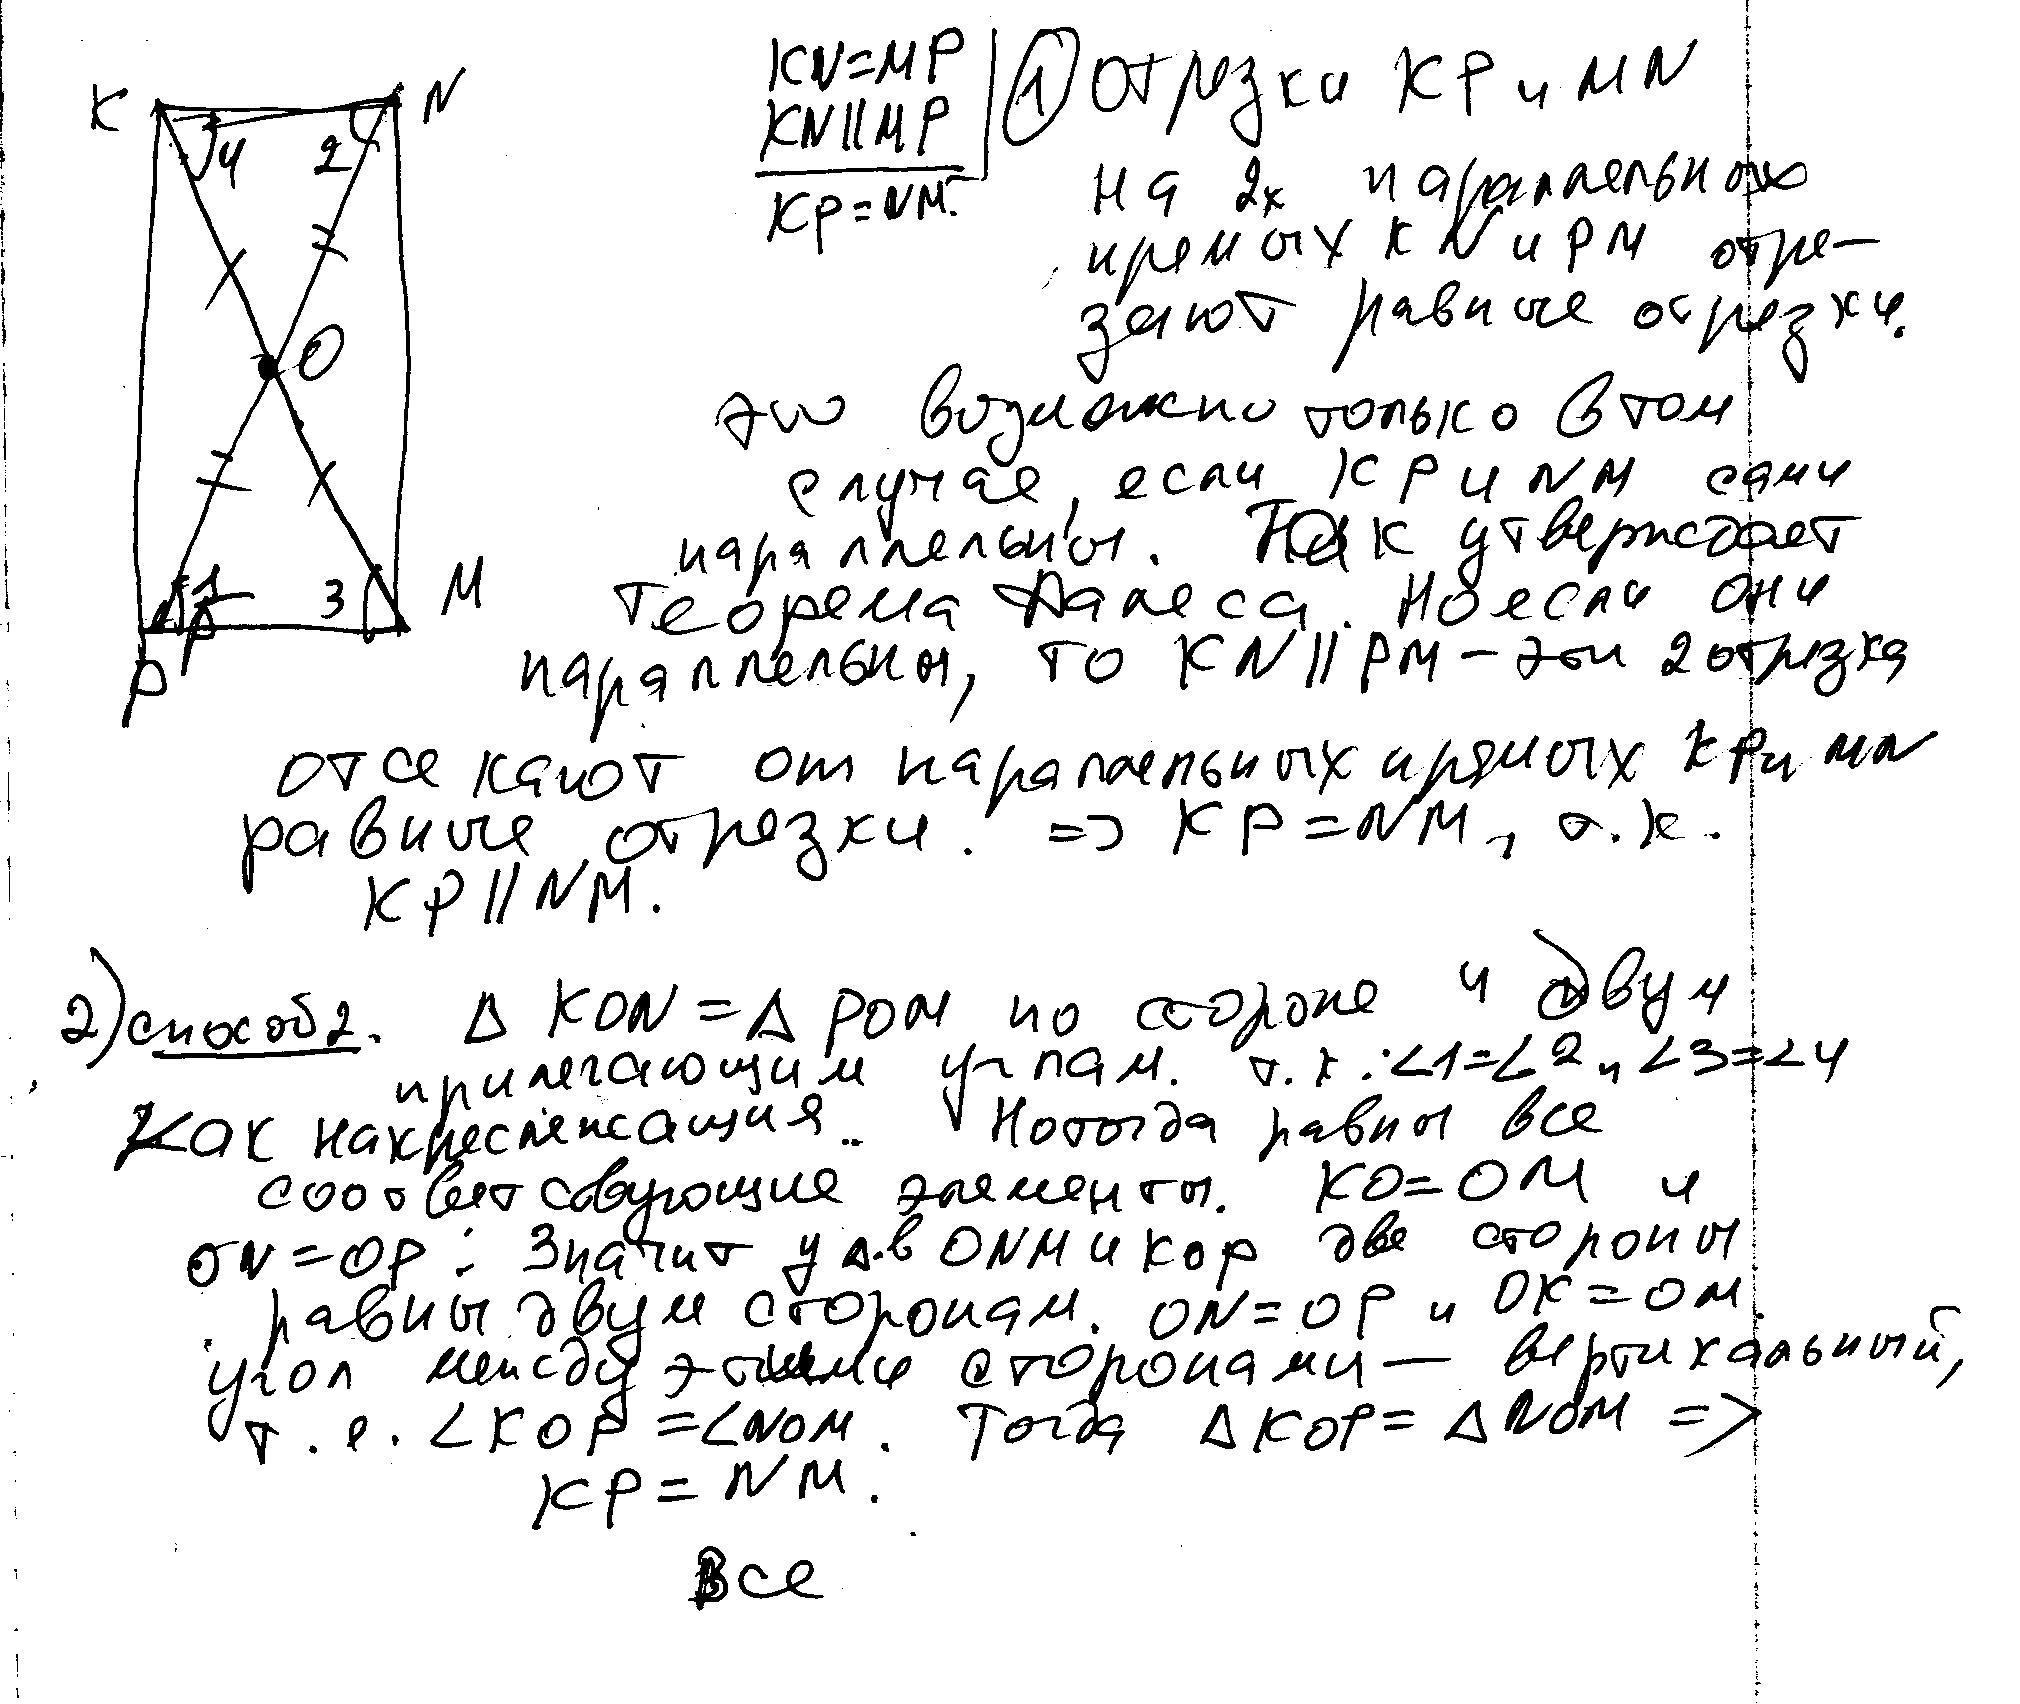 K
N
4
2
O
1
3
M
P
KN=MP
KN||MP
KP=NM.
1 Отрезки KP и MN
на 2х параллельных
прямых KN и PM отре-
зают равные отрезки.
это возможно только в том
случае, если KP и NM сами
параллельны. Так утверждает
теорема Фалеса. Но если они
параллельны, то KN||PM – эти 2 отрезка
отсекают от параллельных прямых KP и MN
равные отрезки. => KP=NM, т.к.
KP||NM.
2) способ 2. Δ KON = Δ POM по стороне и двум
прилегающим углам. т.к: <1=<2 и <3=<4
Как накрестлежащия.. Но тогда равны все
соответствующие элементы. KO=OM и
ON=OP. Значит у Δ.в ONM и KOP две стороны
равны двум сторонам. ON=OP и OK=OM.
угол между этими сторонами – вертикальный,
т.е. <KOP =<NOM. Тогда ΔKOP= ΔNOM =>
KP=NM.
Все